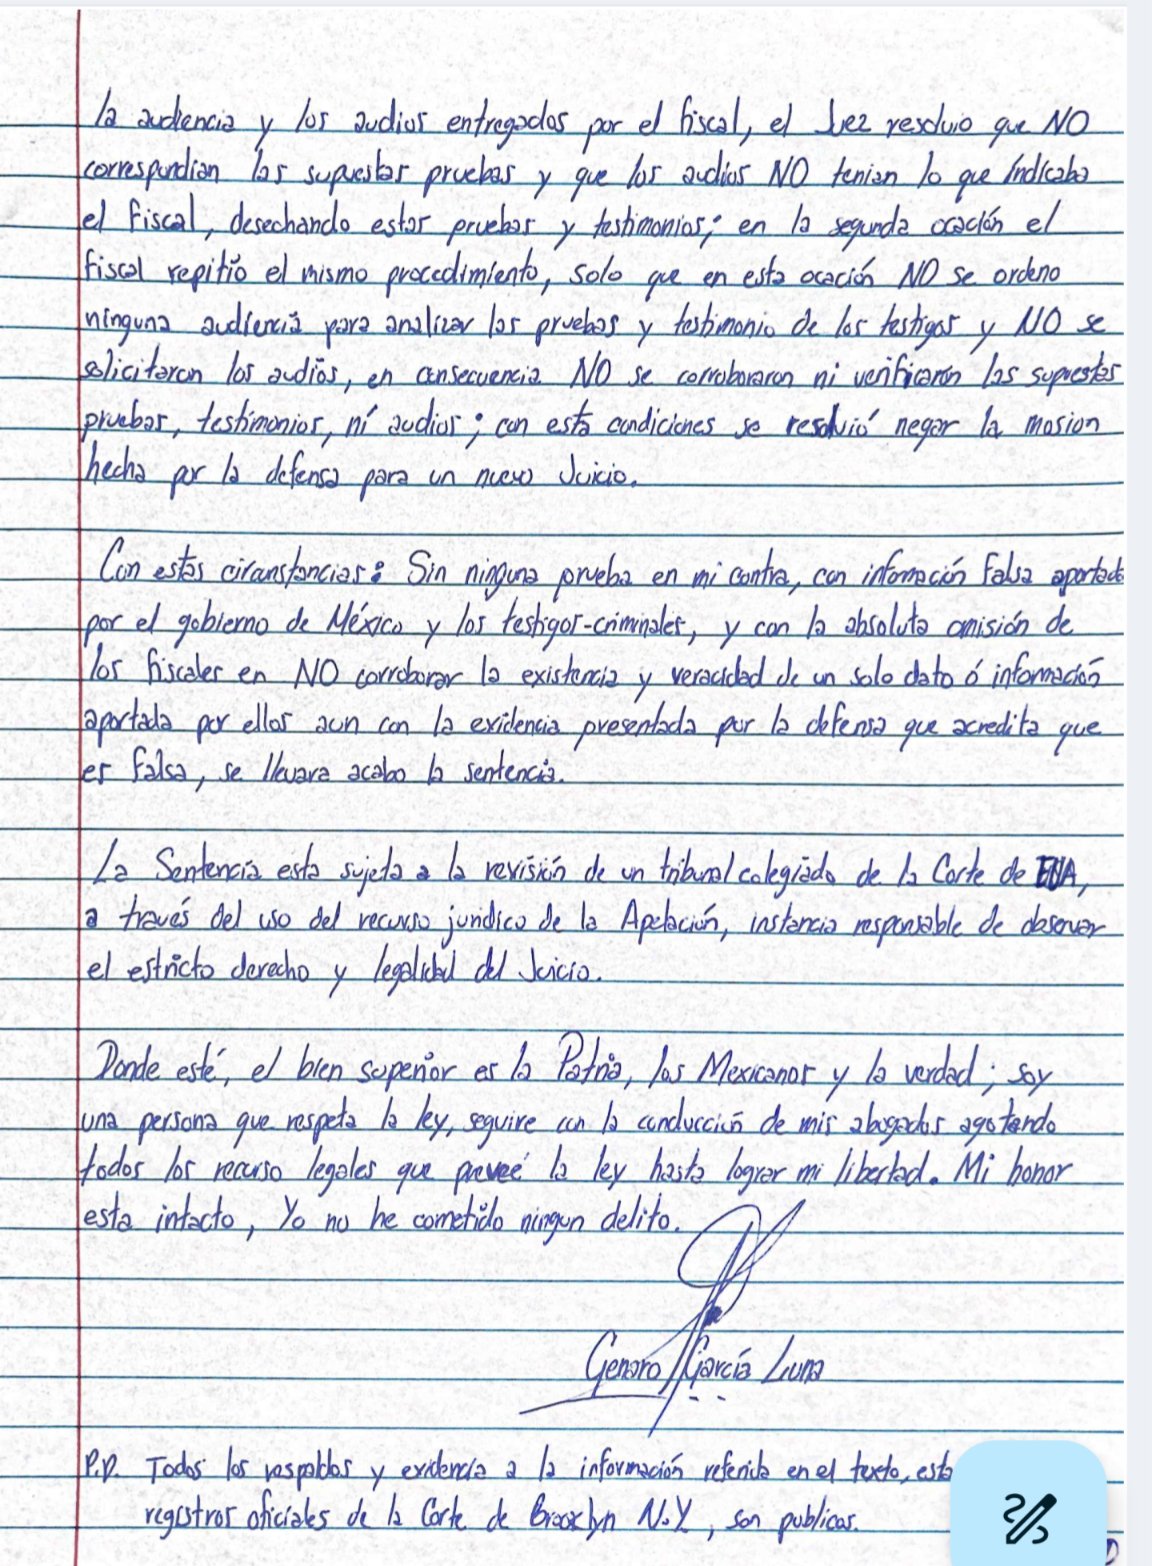 la audiencia y los audios entregados por el fiscal, el Juez resolvio que NO
correspondian las supuestas pruebas y que los audios NO tenian lo que indicaba
el fiscal, desechando estas pruebas y testimonios; en la segunda ocación el
fiscal repitio el mismo procedimiento, solo que en esta ocación NO se ordeno
ninguna audiencia para analizar las pruebas y testimonio de los testigos y NO se
solicitaron los audios, en consecuencia NO se corroboraron ni verificarón las supuestas
pruebas, testimonios, ni audios; con esta condiciones se resolvió negar la mosion
hecha por la defensa para un nuevo Juicio.
Con estas circunstancias: Sin ninguna prueba en mi contra, con información falsa aportada
por el gobierno de México y los testigos-criminales, y con la absoluta omisión de
los fiscales en NO corroborar la existencia y veracidad de un solo dato ó información
aportada por ellos aun con la evidencia presentada por la defensa que acredita que
es falsa, se llevara acabo la sentencia.
La Sentencia esta sujeta a la revisión de un tribunal colegiado de la Corte de EUA,
a través del uso del recurso juridico de la Apelación, instancia responsable de observar
el estricto derecho y legalidad del Juicio.
Donde esté, el bien superior es la Patria, los Mexicanos y la verdad; soy
una persona que respeta la ley, seguire con la conducción de mis abogados agotando
todos los recurso legales que preveé la ley hasta lograr mi libertad. Mi honor
esta intacto, Yo no he cometido ningun delito.
Genaro García Luna
P.D. Todos los respaldos y evidencia a la información referida en el texto, esta
registros oficiales de la Corte de Brooklyn N.Y, son publicos.